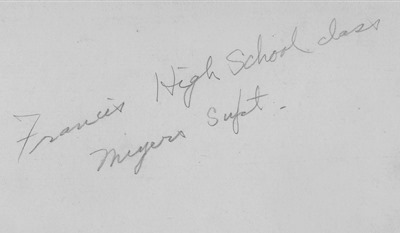 Francis High School class
Meyers Supt.